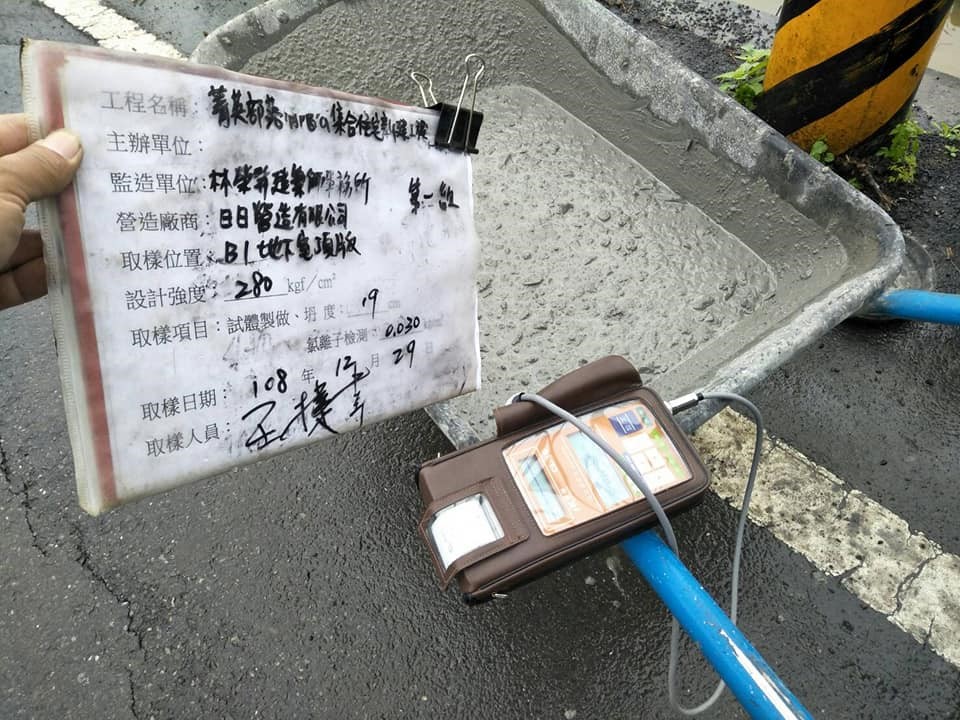 工程名稱：菁英部落 集合住宅新建工程
主辦單位：
監造單位：林榮 建築師事務所
第一台
營造廠商：日日營造有限公司
取樣位置：B1地下室頂版
設計強度：280 kgf/cm²
取樣項目：試體製做、坍度：19 cm
氯離子檢測：0.030
取樣日期：108 年 12 月 29 日
取樣人員：